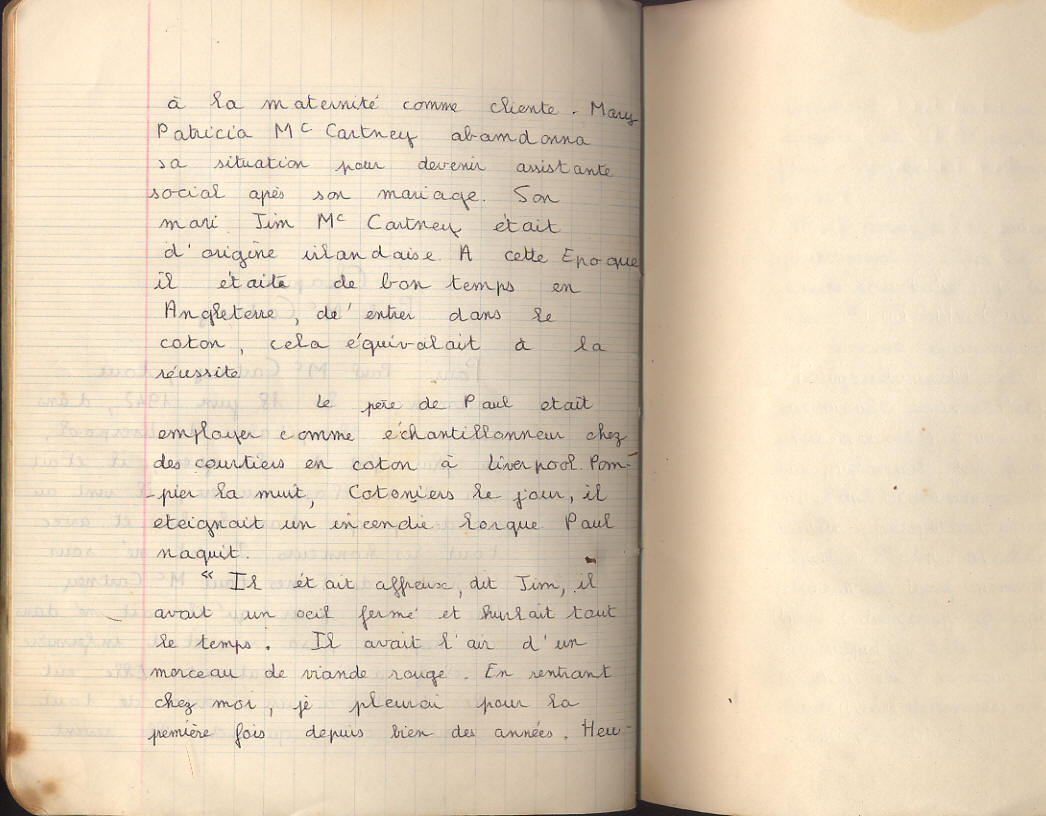 à la maternité comme cliente. Mary
Patricia Mc Cartney abamdonna
sa situation pour devenir assistante
social après son mariage. Son
mari Jim Mc Cartney était
d'origine irlandaise. A cette Epoque
il étaite de bon temps en
Angleterre, de' entrer dans le
coton, cela équivalait à la
réussite.
Le père de Paul etait
employer comme échantillonneur chez
des courtiers en coton à Liverpool. Pom-
-pier la nuit, Cotoniers le jour, il
eteignait un incendie lorque Paul
naquit.
“ Il était affreux, dit Jim, il
avait un oeil fermé et hurlait tout
le temps. Il avait l'air d'un
morceau de viande rouge. En rentrant
chez moi, je pleurai pour la
première fois depuis bien des années. Heu-